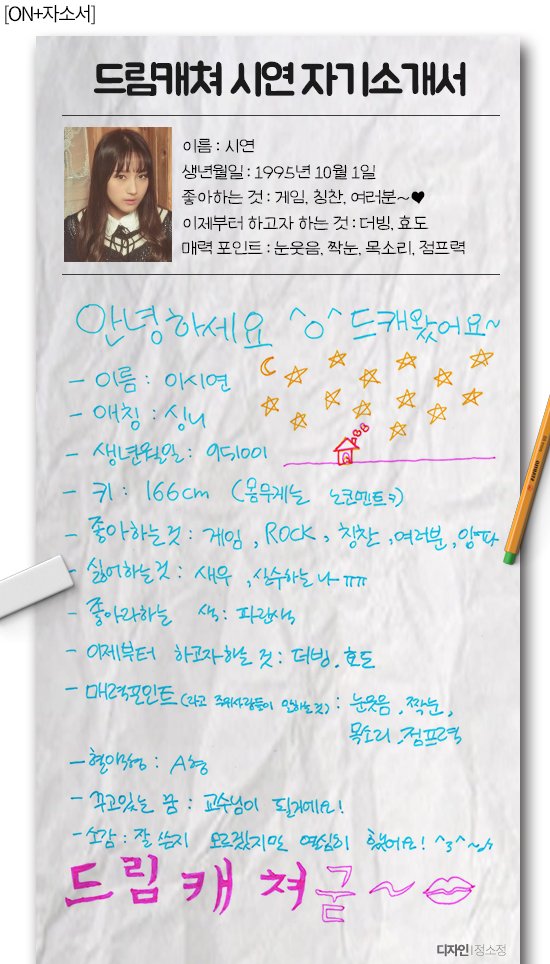 [ON+자소서]
드림캐쳐 시연 자기소개서
이름 : 시연
생년월일 : 1995년 10월 1일
좋아하는 것 : 게임, 칭찬, 여러분~♥
이제부터 하고자 하는 것 : 더빙, 효도
매력 포인트 : 눈웃음, 짝눈, 목소리, 점프력
안녕하세요 ^o^ 드캐왔어요~
- 이름 : 이시연
- 애칭 : 싱니
- 생년월일 : 951001
- 키 : 166cm (몸무게는 노코멘트ㅋ)
- 좋아하는것 : 게임, ROCK, 칭찬, 여러분, 양파
- 싫어하는것 : 새우, 실수하는 나 ㅠㅠ
- 좋아라하는 색 : 파란색
- 이제부터 하고자하는 것 : 더빙, 효도
- 매력포인트 (라고 주위사람들이 말하는 것) : 눈웃음, 짝눈,
목소리, 점프력
- 혈액형 : A형
- 꾸고있는 꿈 : 교수님이 될거에요!
- 소감 : 잘 쓴지 모르겠지만 열심히 했어요! ^3^~♪
드림캐쳐굳~
디자인 | 정소정